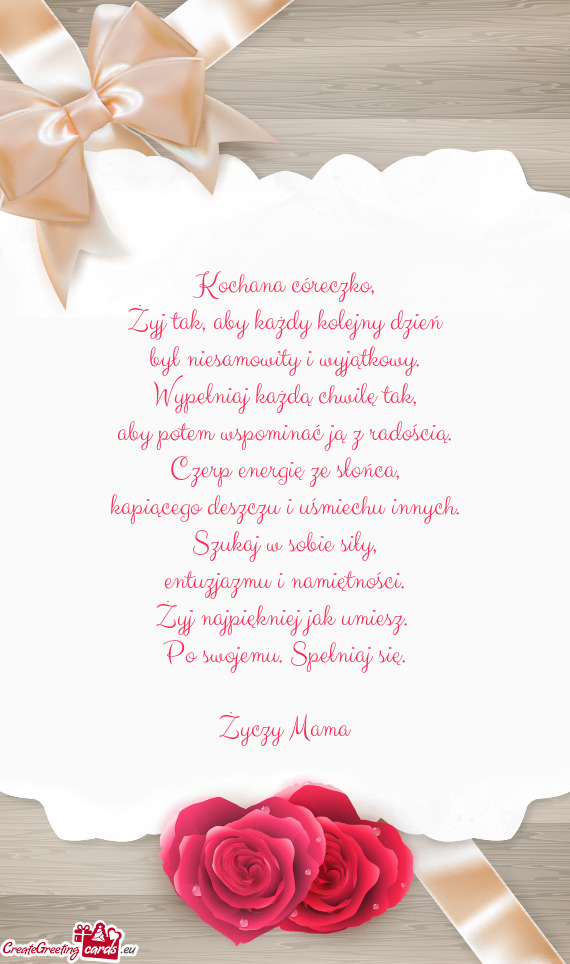 Kochana córeczko,
Żyj tak, aby każdy kolejny dzień
był niesamowity i wyjątkowy.
Wypełniaj każdą chwilę tak,
aby potem wspominać ją z radością.
Czerp energię ze słońca,
kapiącego deszczu i uśmiechu innych.
Szukaj w sobie siły,
entuzjazmu i namiętności.
Żyj najpiękniej jak umiesz.
Po swojemu. Spełniaj się.
Życzy Mama
CreateGreeting cards .eu